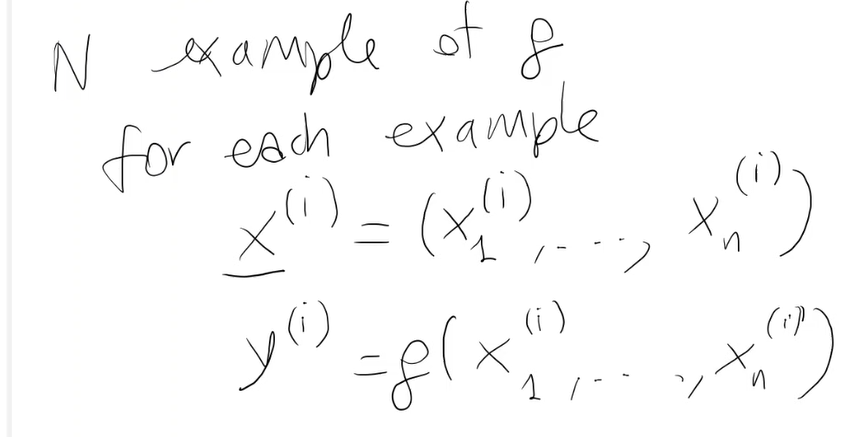 N example of f
for each example
x^(i) = (x_1^(i), ..., x_n^(i))
y^(i) = f(x_1^(i), ..., x_n^(i))